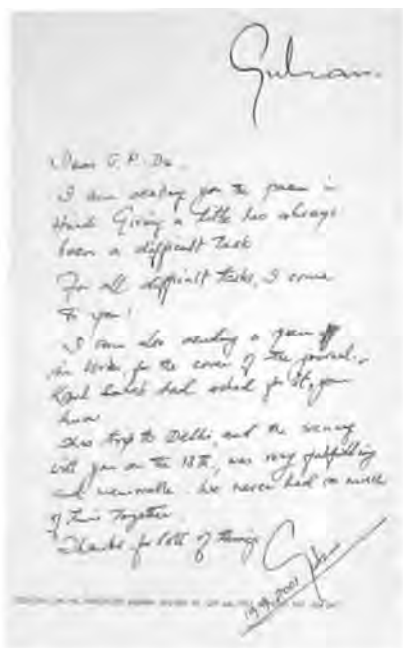 Gulzar.
Dear J. P. Da.
I am sending you the poem in
Hindi. Giving a title has always
been a difficult Task
For all difficult Tasks, I come
To you!
I am also sending a poem
in Urdu, for the cover of the journal.
had asked for it, you
know
This trip to Delhi, and the evening
with you on the 13th, was very fulfilling
and memorable. We never had so much
of Time Together
Thanks for lots of things